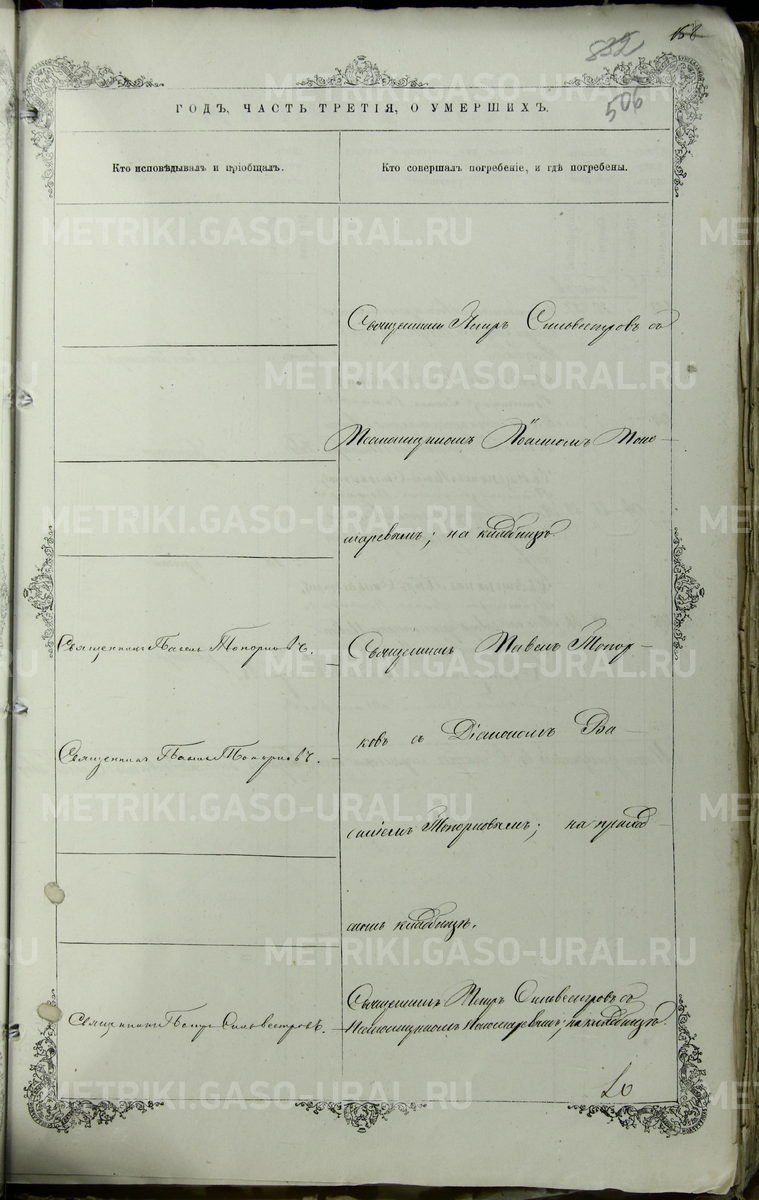 158
832
506
ГОДЪ, ЧАСТЬ ТРЕТІЯ, О УМЕРШИХЪ.
Кто исповѣдывалъ и пріобщалъ.
Кто совершалъ погребеніе, и гдѣ погребены.
METRIKI.GASO-URAL.RU
Священникъ Петръ Сильвестровъ съ
Псаломщикомъ Іоанномъ Поно-
маревымъ; на кладбищѣ
Священникъ Павелъ Топорковъ.
Священникъ Павелъ Топор-
Священникъ Павелъ Топорковъ.
ковъ съ Діакономъ Ва-
силіемъ Топорковымъ; на приход-
скомъ кладбищѣ.
Священникъ Петръ Сильвестровъ.
Священникъ Петръ Сильвестровъ съ
Псаломщикомъ Пономаревымъ; на кладбищѣ.